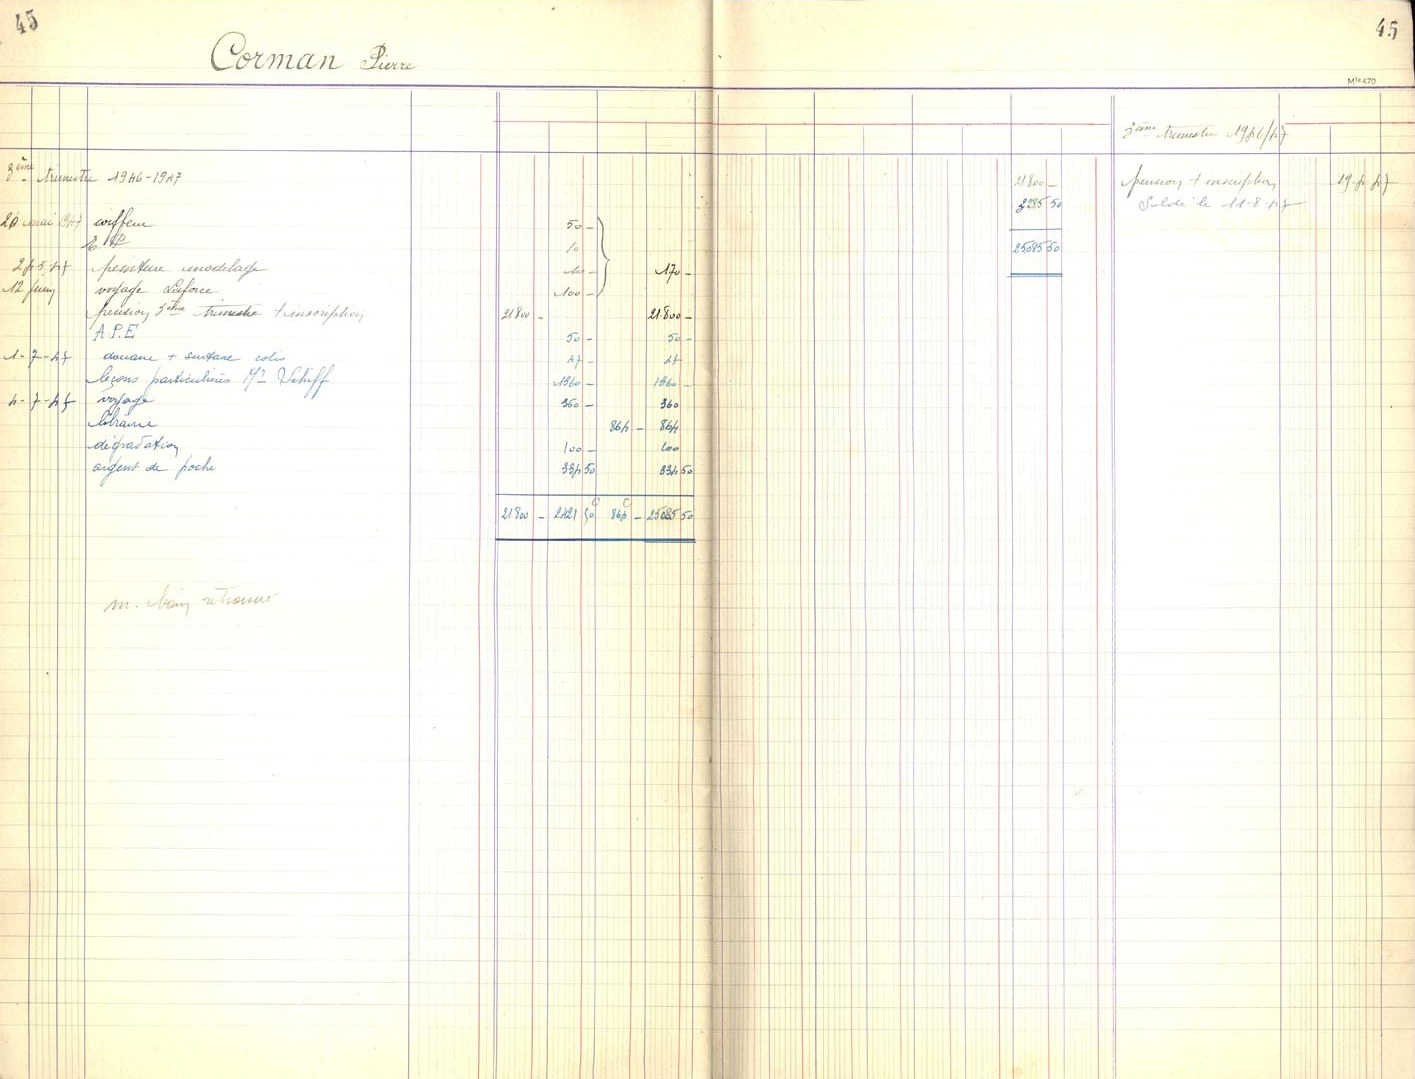 45
45
Corman Pierre
Mle 470
3ème trimestre 1946/47
3ème trimestre 1946-1947
21800 - pension + inscription 19-4-47
3285 50 Soldé le 11-8-47
mai 1947 coiffeur 50 -
10
25085 50
peinture modelage 10 - 170 -
12 juin voyage 100 -
pension 3ème trimestre + inscription 21800 - 21.800 -
A.P.E 50 - 50 -
1-7-47 douane + surtaxe colis 47 - 47
leçons particulières Schiff 1360 - 1360 -
4-7-47 voyage 360 - 360
librairie 864 - 864
dégradation 100 - 100
argent de poche 334 50 334 50
21.800 - 2421 50 864 - 25085 50